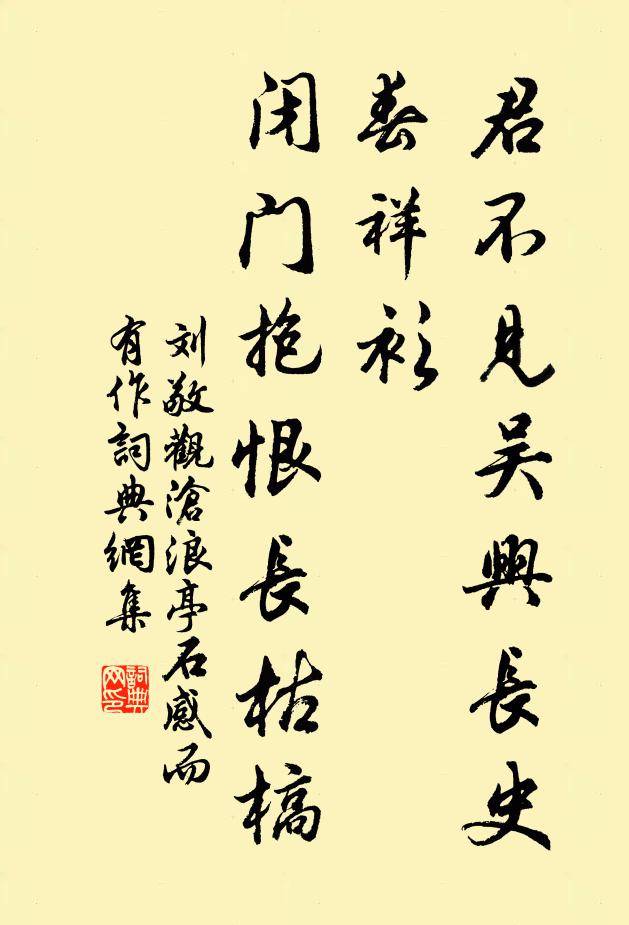 君不见吴興長史
春祥衫
闭门抱恨長枯槁
刘敞觀滄浪亭石感而
有作詞典網集
詞典网印